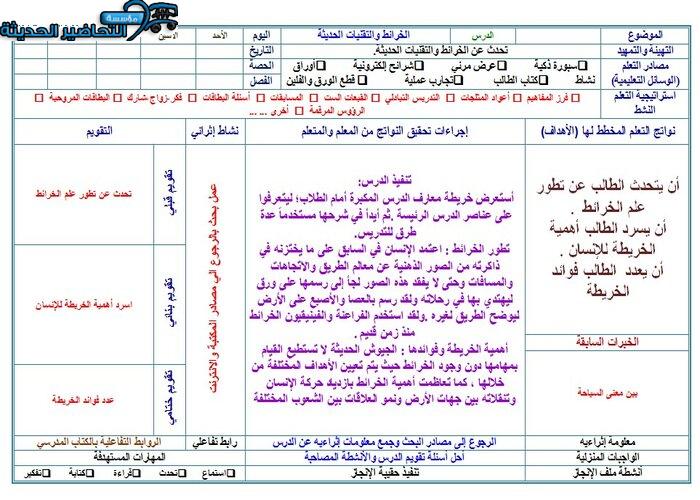 مؤسسة التحاضير الحديثة
الموضوع
الدرس
الخرائط والتقنيات الحديثة
اليوم
الأحد
الاثنين
التهيئة والتمهيد
تحدث عن الخرائط والتقنيات الحديثة.
التاريخ
مصادر التعلم
(الوسائل التعليمية)
سبورة ذكية
عرض مرئي
شرائح إلكترونية
أوراق
الحصة
نشاط
كتاب الطالب
تجارب عملية
قطع الورق والفلين
الفصل
استراتيجية التعلم
النشط
فرز المفاهيم
أعواد المثلجات
التدريس التبادلي
القبعات الست
المسابقات
أسئلة البطاقات
فكر-زواج-شارك
البطاقات المروحية
الرؤوس المرقمة
أخرى ... ...
نواتج التعلم المخطط لها (الأهداف)
إجراءات تحقيق النواتج من المعلم والمتعلم
نشاط إثرائي
التقويم
أن يتحدث الطالب عن تطور
علم الخرائط .
أن يسرد الطالب أهمية
الخريطة للإنسان .
أن يعدد الطالب فوائد
الخريطة
الخبرات السابقة
بين معنى السياحة
تنفيذ الدرس:
أستعرض خريطة معارف الدرس المكبرة أمام الطلاب؛ ليتعرفوا
على عناصر الدرس الرئيسة .ثم أبدأ في شرحها مستخدماً عدة
طرق للتدريس.
تطور الخرائط : اعتمد الإنسان في السابق على ما يختزنه في
ذاكرته من الصور الذهنية عن معالم الطريق والاتجاهات
والمسافات وحتى لا يفقد هذه الصور لجأ إلى رسمها على ورق
ليهتدي بها في رحلاته ولقد رسم بالعصا والأصبع على الأرض
ليوضح الطريق لغيره .ولقد استخدم الفراعنة والفينيقيون الخرائط
منذ زمن قديم .
أهمية الخريطة وفوائدها : الجيوش الحديثة لا تستطيع القيام
بمهامها دون وجود الخرائط حيث يتم تعيين الأهداف المختلفة من
خلالها ، كما تعاظمت أهمية الخرائط بازدياد حركة الإنسان
وتنقلاته بين جهات الأرض ونمو العلاقات بين الشعوب المختلفة
عمل بحث بالرجوع الي مصادر المكتبة والانترنت
تقويم قبلي
تحدث عن تطور علم الخرائط
تقويم بنائي
اسرد أهمية الخريطة للإنسان
تقويم ختامي
عدد فوائد الخريطة
معلومة إثرائية
الرجوع إلى مصادر البحث وجمع معلومات إثرائية عن الدرس
رابط تفاعلي
الروابط التفاعلية بالكتاب المدرسي
الواجبات المنزلية
أحل أسئلة تقويم الدرس والأنشطة المصاحبة
المهارات المستهدفة
أنشطة ملف الإنجاز
تنفيذ حقيبة الإنجاز
استماع
تحدث
قراءة
كتابة
تفكير